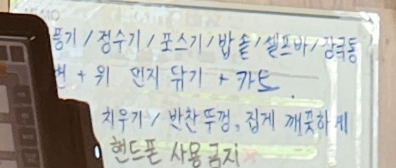 풍기 / 정수기 / 포스기 / 밥솥 / 셀프바 /
+ 위 먼지 닦기 + 카드
치우기 / 반찬뚜껑, 집게 깨끗하게
핸드폰 사용금지